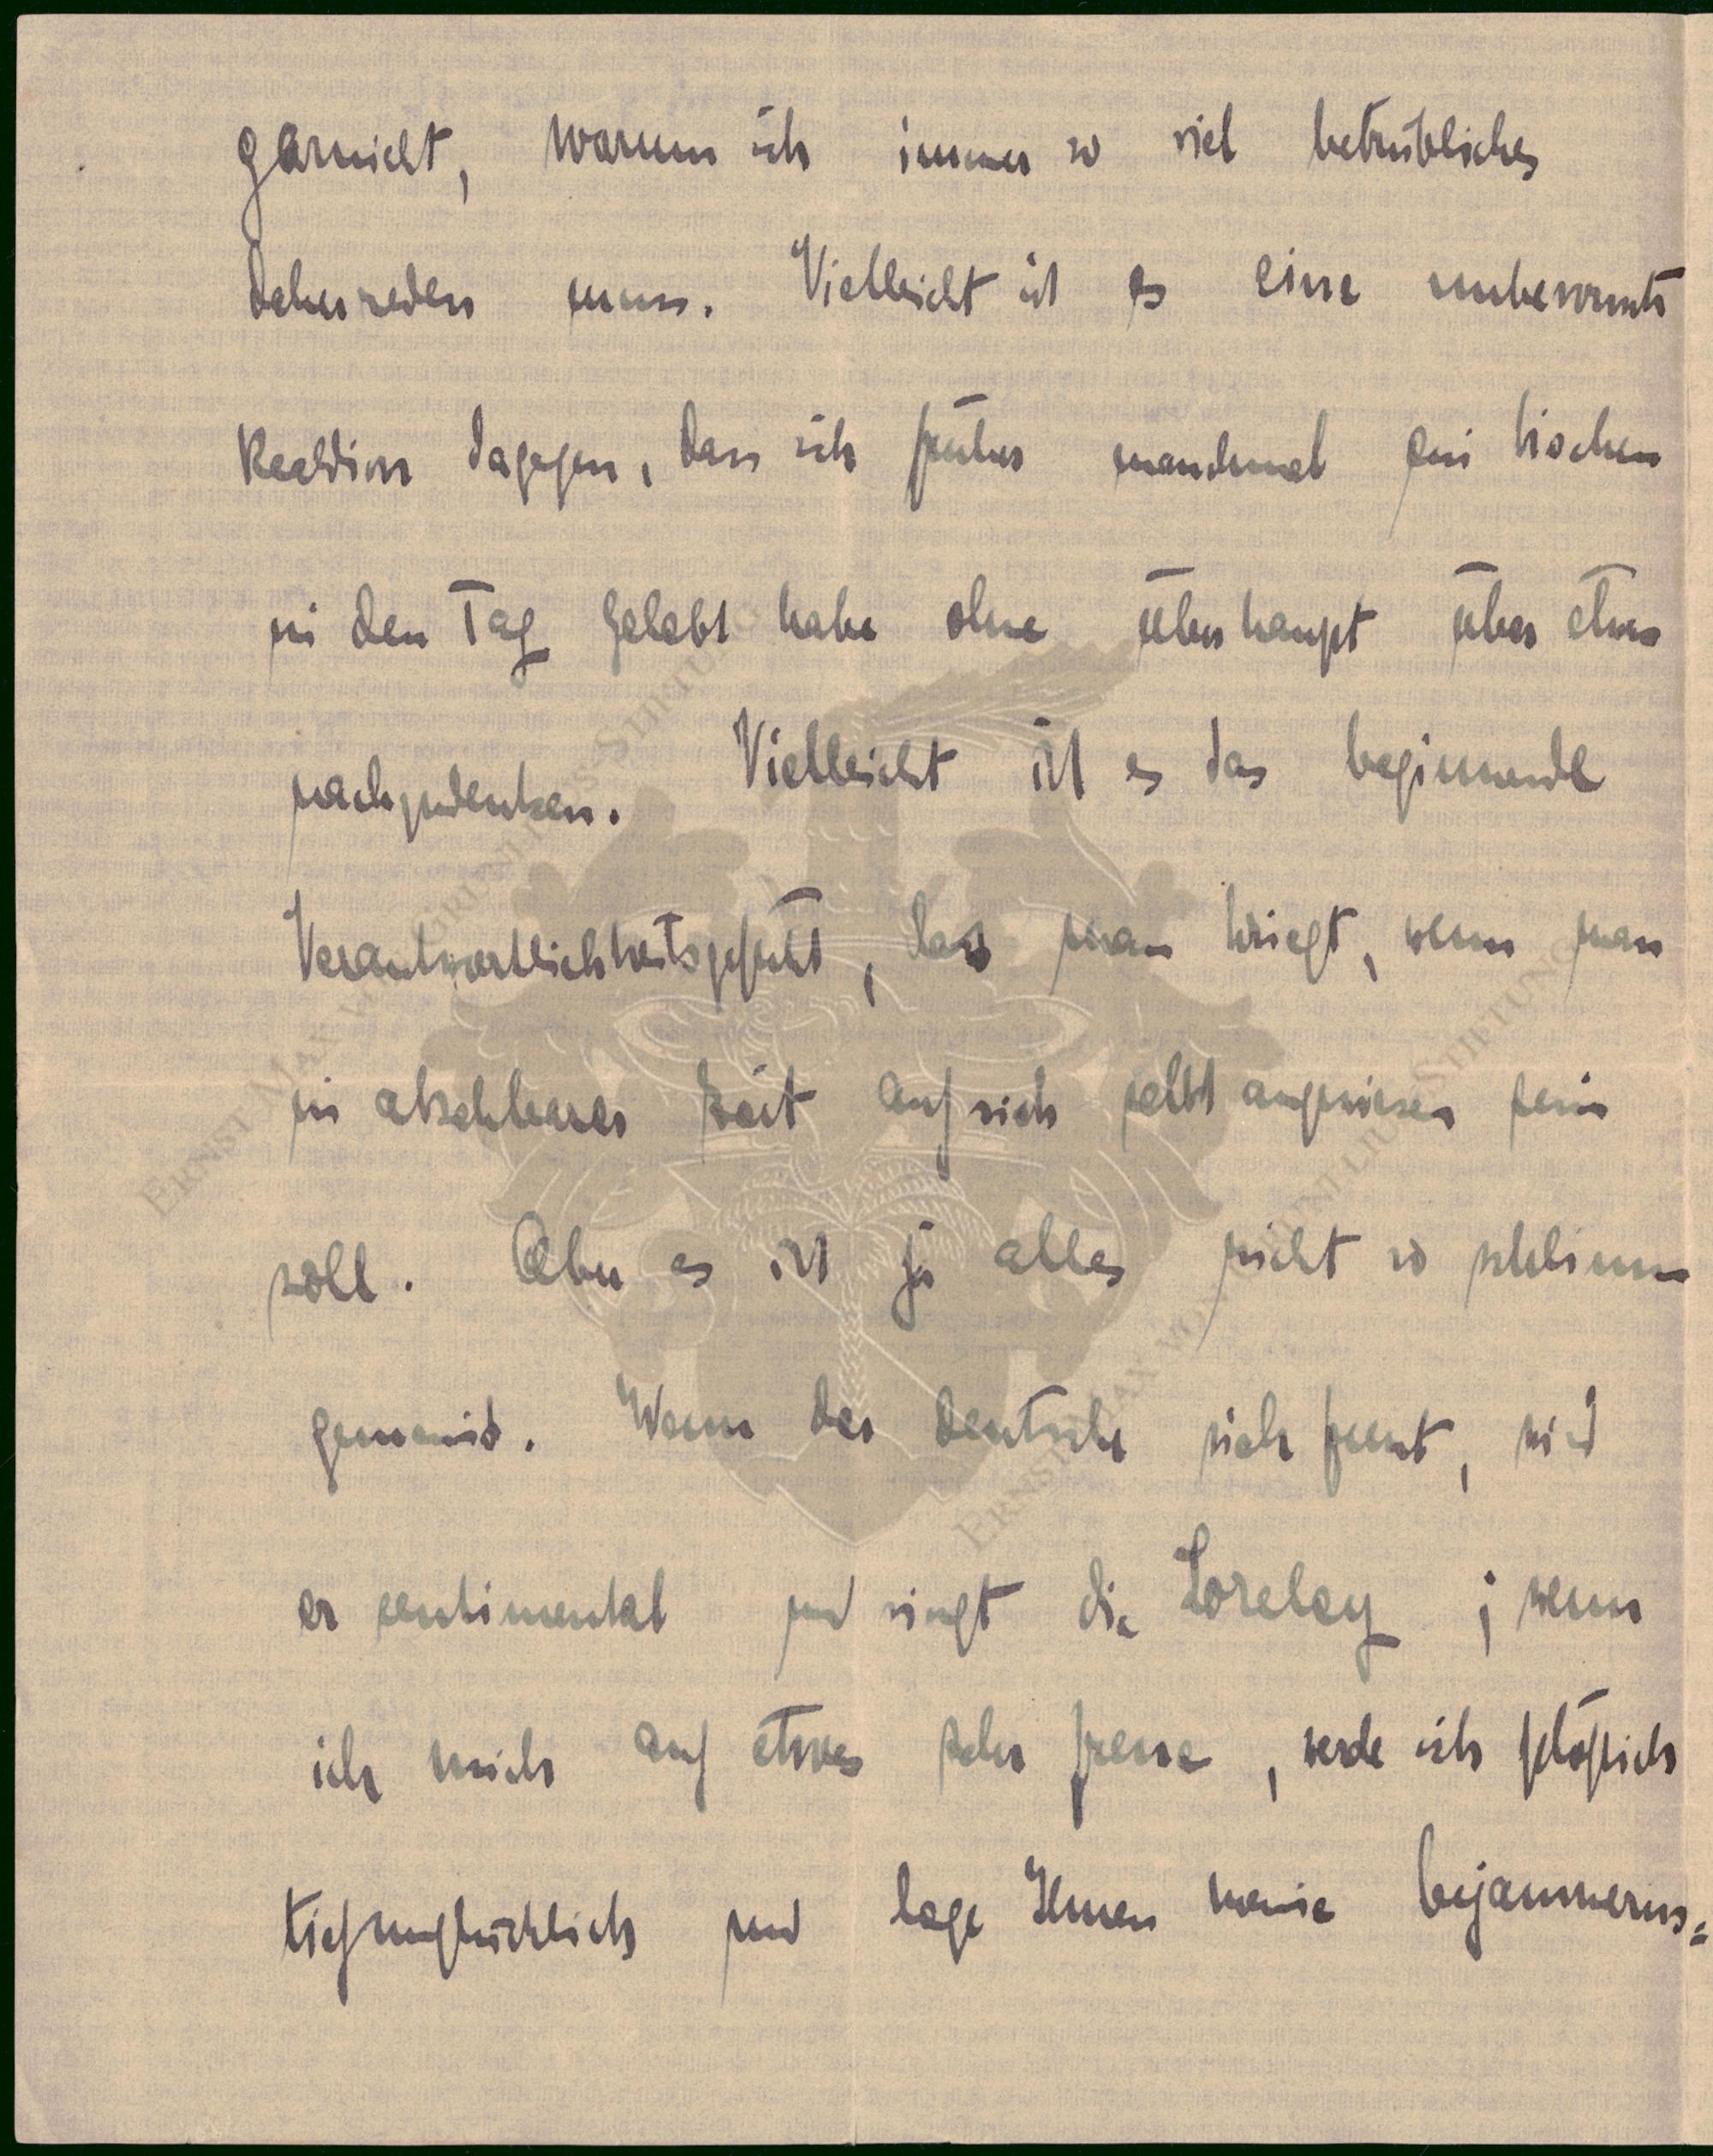 garnicht, warum ich immer so viel betrübliches
daherreden muss. Vielleicht ist es eine unbewusste
Reaktion dagegen, dass ich früher manchmal ein bischen
in den Tag gelebt habe ohne überhaupt über etwas
nachzudenken. Vielleicht ist es das beginnende
Verantwortlichkeitsgefühl, das man kriegt, wenn man
in absehbarer Zeit auf sich selbst angewiesen sein
soll. Aber es ist ja alles nicht so schlimm
gemeint. Wenn der Deutsche sich freut, wird
er sentimental und singt die Loreley; wenn
ich mich auf etwas sehr freue, werde ich plötzlich
tiefunglücklich und lege Ihnen meine bejammerns=
ERNST MAX VON GRUNELIUS-STIFTUNG
ERNST MAX VON GRUNELIUS-STIFTUNG